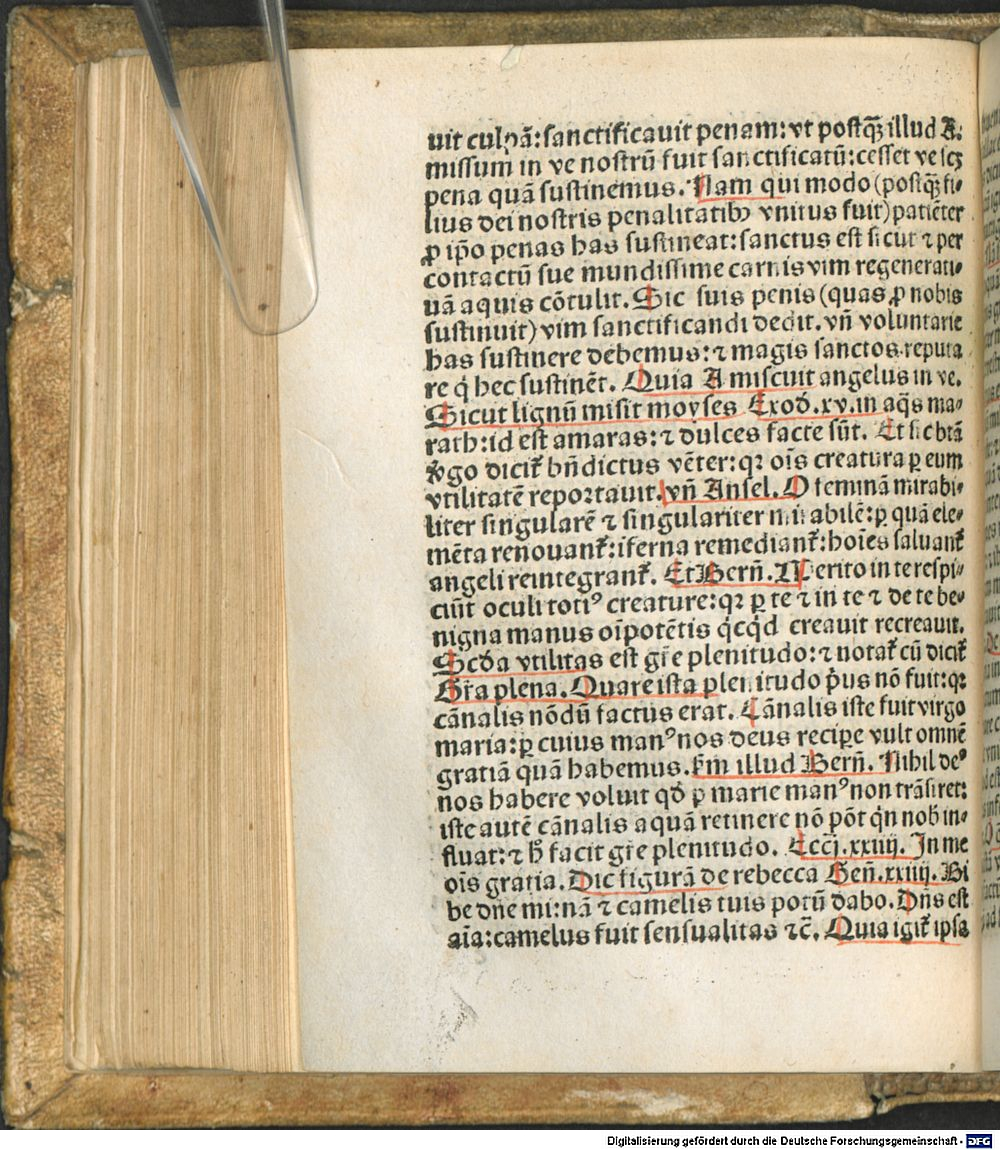 uit culpã: sanctificauit penam: vt postqȝ illud A.
missum in ve nostrũ fuit sanctificatũ: cesset ve scȝ
pena quã sustinemus. Nam qui modo (postqȝ fi⸗
lius dei nostris penalitatibꝰ vnitus fuit) patiẽter
ꝓ ip̃o penas has sustineat: sanctus est sicut ⁊ per
contactũ sue mundissime carnis vim regenerati⸗
uã aquis cõtulit. Sic suis penis (quas ꝓ nobis
sustinuit) vim sanctificandi dedit. vñ voluntarie
has sustinere debemus: ⁊ magis sanctos reputa
re q̇ hec sustinẽt. Quia A miscuit angelus in ve.
Sicut lignũ misit moyses Exod̃. xv. in aq̃s ma⸗
rath: id est amaras: ⁊ dulces facte sũt. Et sic btã
v̾go dicit᷑ bñdictus vẽter: qꝛ oĩs creatura ꝑ eum
vtilitatẽ reportauit. vñ Ansel. O feminã mirabi⸗
liter singularẽ ⁊ singulariter mirabilẽ: ꝑ quã ele⸗
mẽta renouant᷑: iferna remediant᷑: hoĩes saluant᷑
angeli reintegrant᷑. Et Berñ. Merito in te respi⸗
ciũt oculi totiꝰ creature: qꝛ ꝑ te ⁊ in te ⁊ de te be⸗
nigna manus oĩpotẽtis q̇cq̇d creauit recreauit.
Scd̃a vtilitas est gr̃e plenitudo: ⁊ notat᷑ cũ dicit᷑
Gr̃a plena. Quare ista plenitudo p̾us nõ fuit: qꝛ
cãnalis nõdũ factus erat. Cãnalis iste fuit virgo
maria: ꝑ cuius manꝰ nos deus recipe vult omnẽ
gratiã quã habemus. Fm̃ illud Berñ. Nihil deꝰ
nos habere voluit qd̃ ꝑ marie manꝰ non trãsiret:
iste autẽ cãnalis aquã retinere nõ põt q̇n nob̃ in⸗
fluat: ⁊ h̃ facit gr̃e plenitudo. Ecci̾. xxiiij. In me
oĩs gratia. Dic figurã de rebecca Geñ. xxiiij. Bi
be dñe mi: nã ⁊ camelis tuis potũ dabo. Dñs est
aĩa: camelus fuit sensualitas ⁊c̃. Quia igit᷑ ipsa
Digitalisierung gefördert durch die Deutsche Forschungsgemeinschaft - DFG